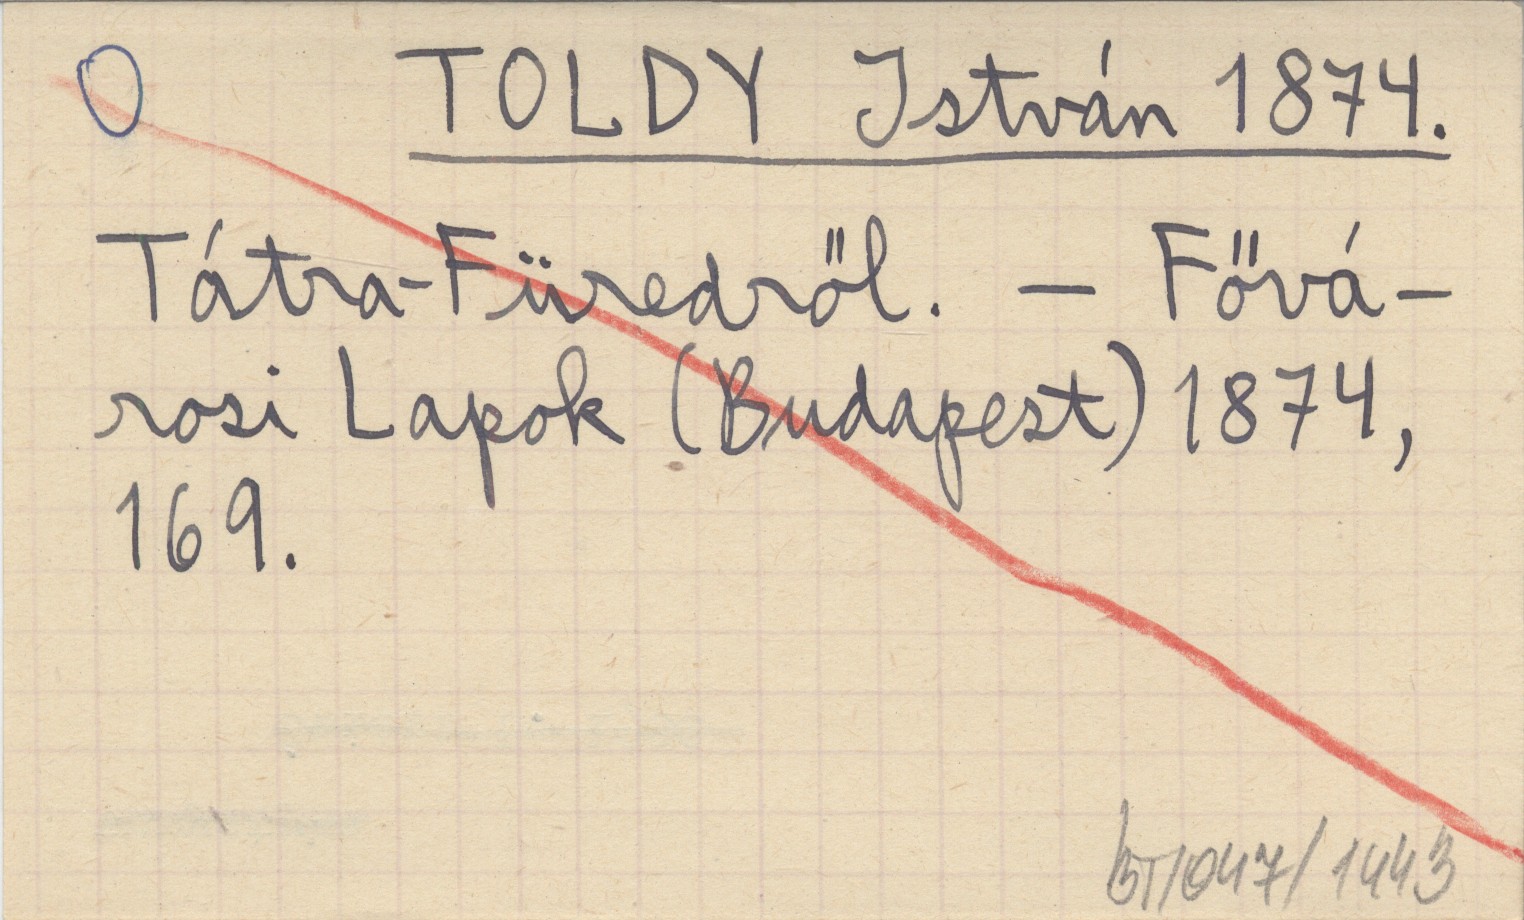 O TOLDY István 1874.
Tátra-Füredről. — Fővá-
rosi Lapok (Budapest) 1874,
169.
BT/047/1443